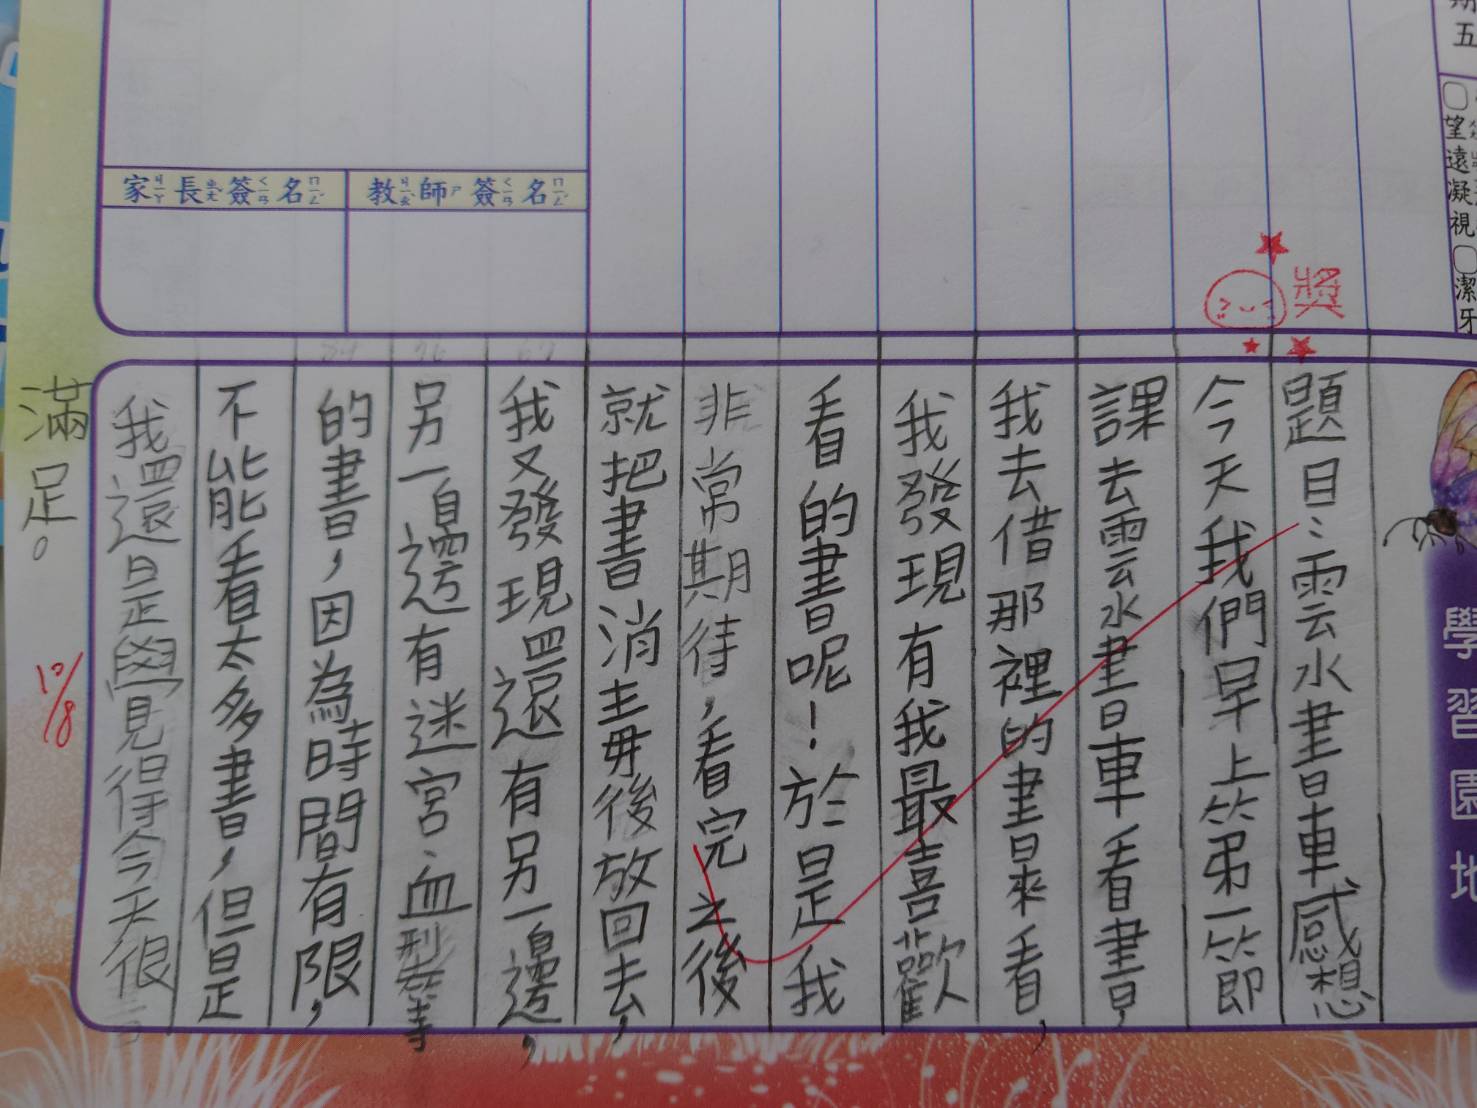 期
五
望
遠
凝
視
潔
牙
獎
家長簽名
教師簽名
學習園地
題目：雲水書車感想
今天我們早上第一節
課去雲水書車看書，
我去借那裡的書來看，
我發現有我最喜歡
看的書呢！於是我
非常期待，看完之後
就把書消毒後放回去，
我又發現還有另一邊，
另一邊有迷宮、血型等
的書，因為時間有限，
不能看太多書，但是
我還是覺得今天很
滿足。
10/8